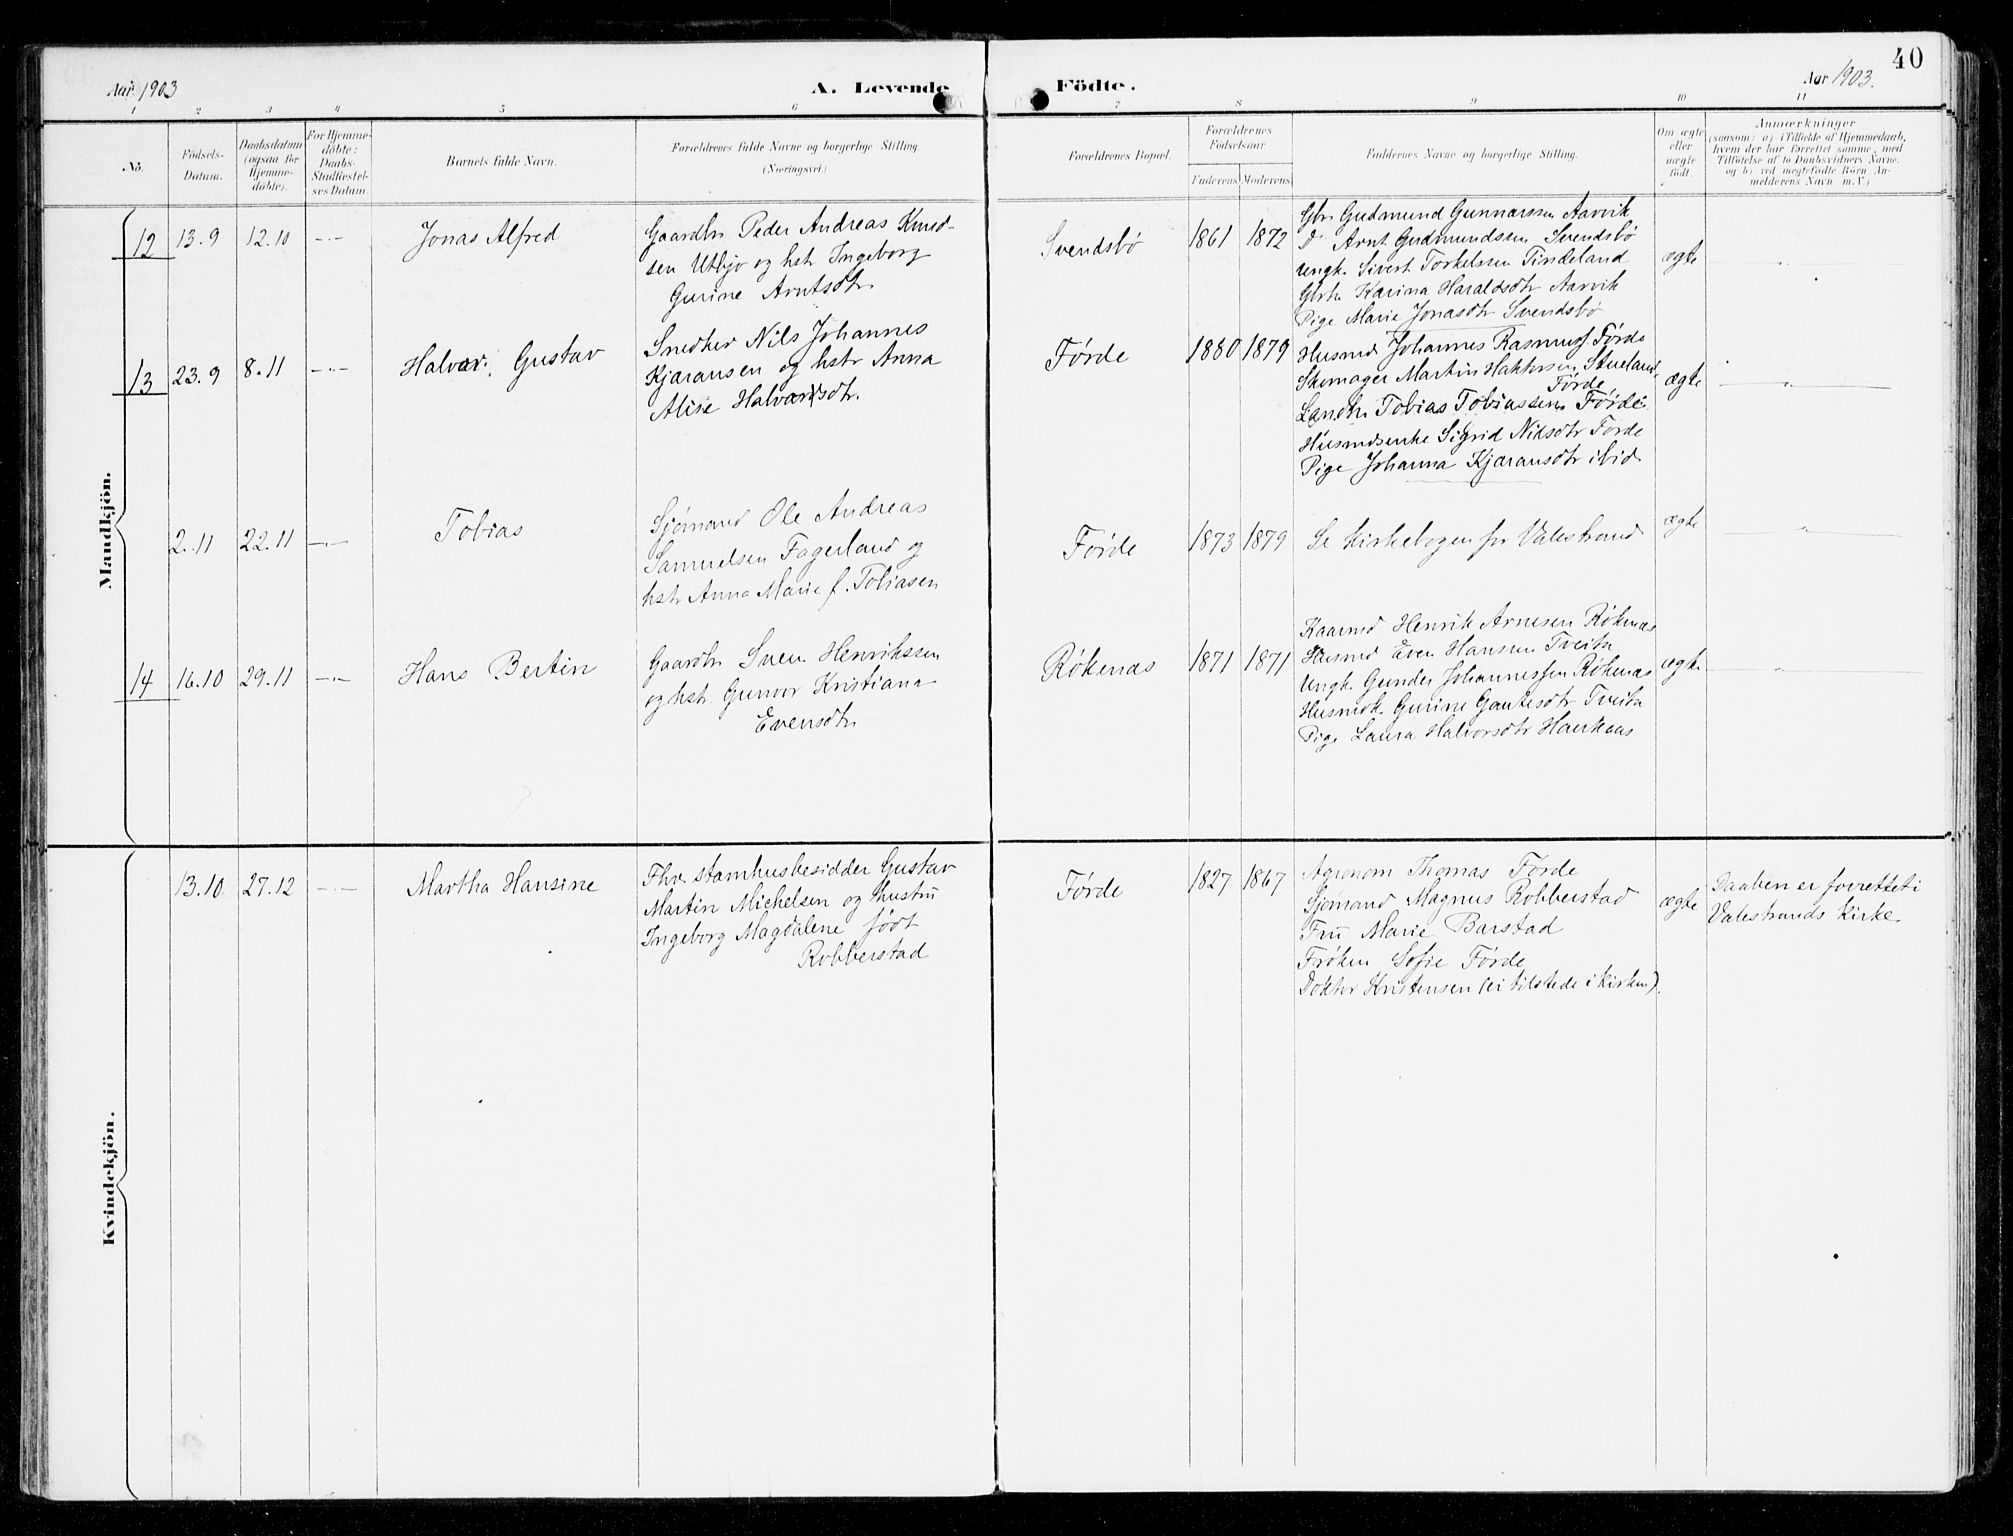 40
Aar 1903
A. Levende Födte.
Aar 1903.
1 2 3 4 5 6 7 8 9 10 11
No.
Födsels-
Datum.
Daabsdatum
(ogsaa for
Hjemme-
döbte).
For Hjemme-
döbte:
Daabs-
Stadfæstel-
ses Datum.
Barnets fulde Navn.
Forældrenes fulde Navne og borgerlige Stilling.
(Næringsvei.)
Forældrenes Bopæl.
Forældrenes
Födselsaar
Faderens Moderens
Faddernes Navne og borgerlige Stilling.
Om ægte
eller
uægte
født.
Anmærkninger
(saasom: a) i Tilfælde af Hjemmedaab,
hvem der har forrettet samme, med
Tilföielse af to Daabsvidners Navne.
og b) ved uægtefödte Börn An-
melderens Navn m. V.)
Mandkjön.
12 13.9 12.10 —"— Jonas Alfred
Gaardbr Peder Andreas Knud-
sen Utbjo og hstr Ingeborg
Gurine Arntsdtr
Svendsbö 1861 1872
Gbr Gudmund Gunnarssen Aarvik
D Arnt Gudmundssen Svendsbö
Ungk. Sivert Torkelssen Tindeland
Gbrk. Karina Haraldsdtr Aarvik
Pige Marie Jonasdtr Svendsbö
ægte —"—
13 23.9 8.11 —"— Halvar Gustav
Snedker Nils Johannes
Kjaransen og hstr Anna
Alise Halvardsdtr.
Førde 1880 1879
Husmd Johannes Rasmuss. Førde
Skomager Martin Stueland,
Førde
Landh. Tobias Tobiassen Førde
Husmdsenke Sigrid Nilsdtr Førde
Pige Johanna Kjaransdtr ibid
ægte —"—
2.11 22.11 —"— Tobias
Sjømand Ole Andreas
Samuelsen Fagerland og
hstr Anna Marie f. Tobiasen
Førde 1873 1879 Se kirkebogen for Valestrand
ægte —"—
14 16.10 29.11 —"— Hans Bertin
Gaardbr Sven Henrikssen
og hst. Gunvor Kristiana
Evensdtr
Røkenæs 1871 1871
Kaarmd Henrik Arnesen Røknæs
Husmd Even Hansen Tveita
Ungk. Gunder Johannessen Røkenæs
Husmdk. Gurine Gautesdtr Tveita
Pige Laura Halvorsdtr Haukaas
ægte —"—
Kvindekjön.
13.10 27.12 —"— Martha Hansine
Fhv. stamhusbesidder Gustav
Martin Michelsen og hustru
Ingeborg Magdalene født
Robberstad
Førde 1827 1867
Agronom Thomas Førde
Sjømand Magnus Robberstad
Fru Marie Barstad
Frøken Sofie Førde
Doktor Kristensen (ei tilstede i kirken).
ægte
Daaben er forrettet i
Valestrands Kirke